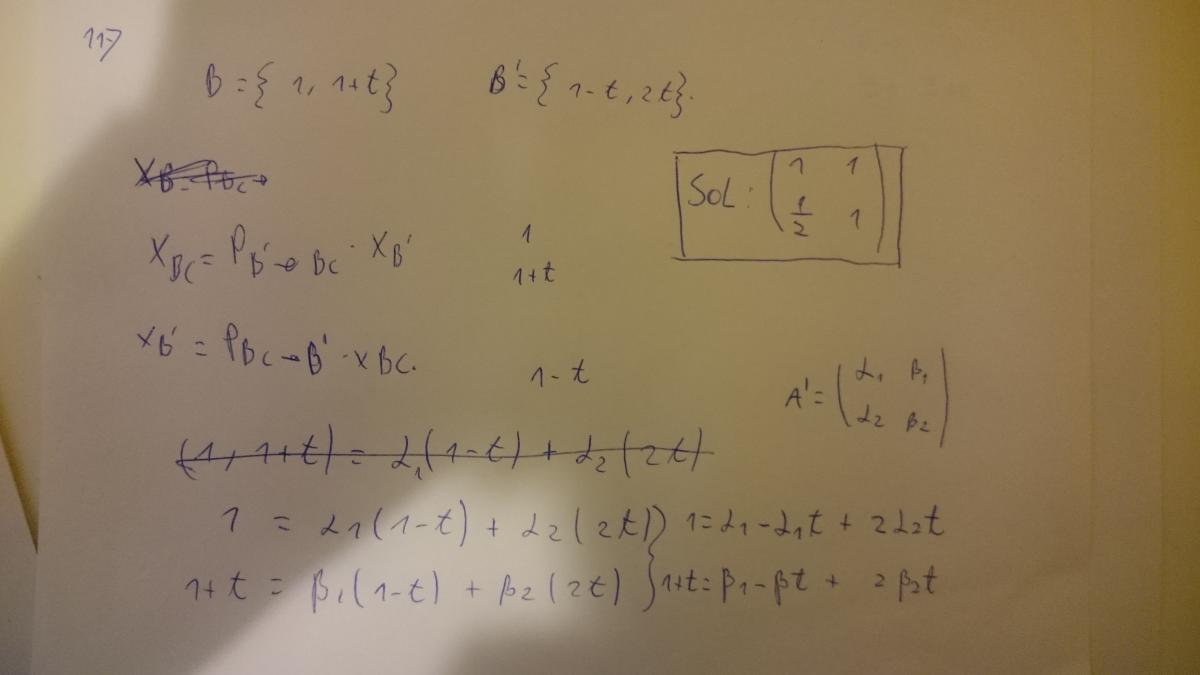 117
B = { 1, 1+t }     B' = { 1-t, 2t }.
X_B = P_BC→
X_BC = P_B'→BC · X_B'
1
1+t
SOL: ( 1 1 ; 1/2 1 )
X_B' = P_BC→B' · X_BC.
1-t
A' = ( α1 β1 ; α2 β2 )
(1, 1+t) = α1(1-t) + α2(2t)
1 = α1(1-t) + α2(2t) } 1 = α1 - α1t + 2α2t
1+t = β1(1-t) + β2(2t) } 1+t = β1 - βt + 2β2t